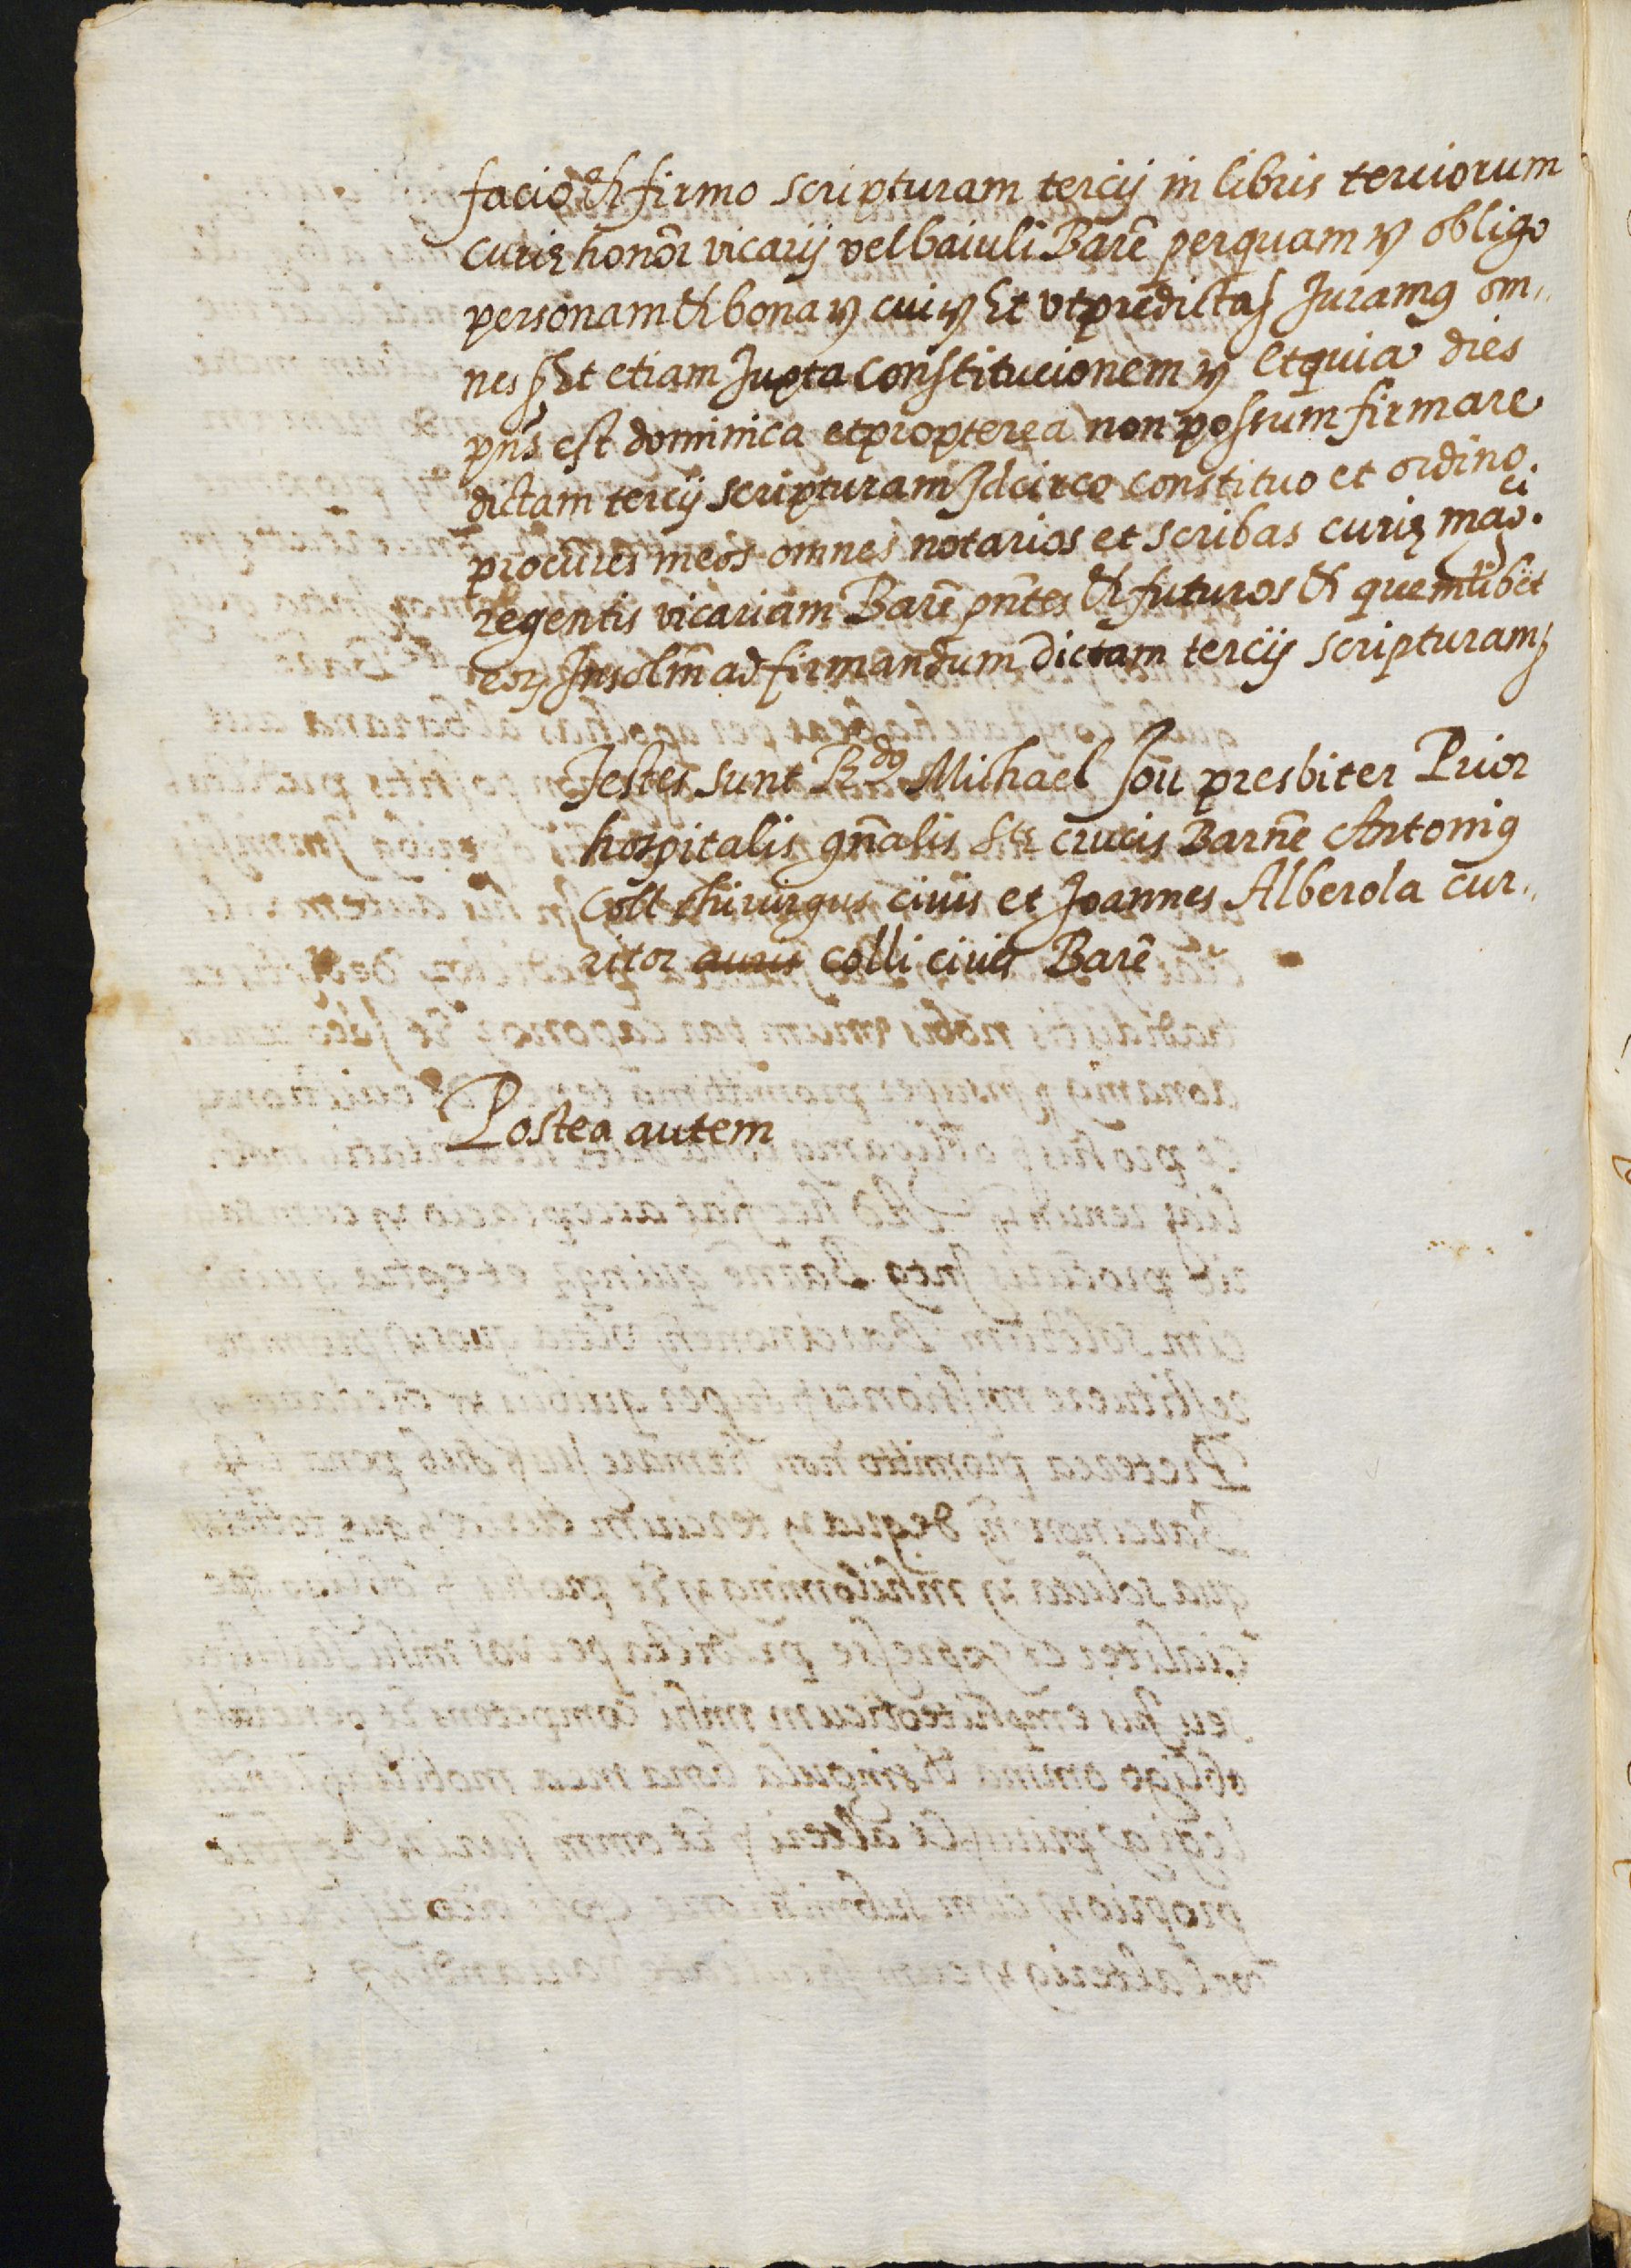 facio & firmo scripturam tercij in libris terciorum
curię honor̃ vicarij vel baiuli Barñe per quam &c obligo
personam & bona &c cui &c Et ut predicta &c Juramus om„
nes &c Et etiam Juxta constitucionem &c Et quia dies
pñs est dominica et propterea non possum firmare
dictam tercij scripturam Idcirco constituo et ordino
procur̃es meos omnes notarios et scribas curię mag.ci
regentis vicariam Barñe pñtes & futuros & quemlibet
eoꝝ Insolm̃ ad firmandum dictam tercij scripturam &c
Testes sunt R.dus Michael Jou presbiter Prior
hospitalis gñalis Stę crucis Barñe Antonius
Coll chirurgus civis et Joannes Alberola cur„
ritor auris colli civis Barñe
Postea autem